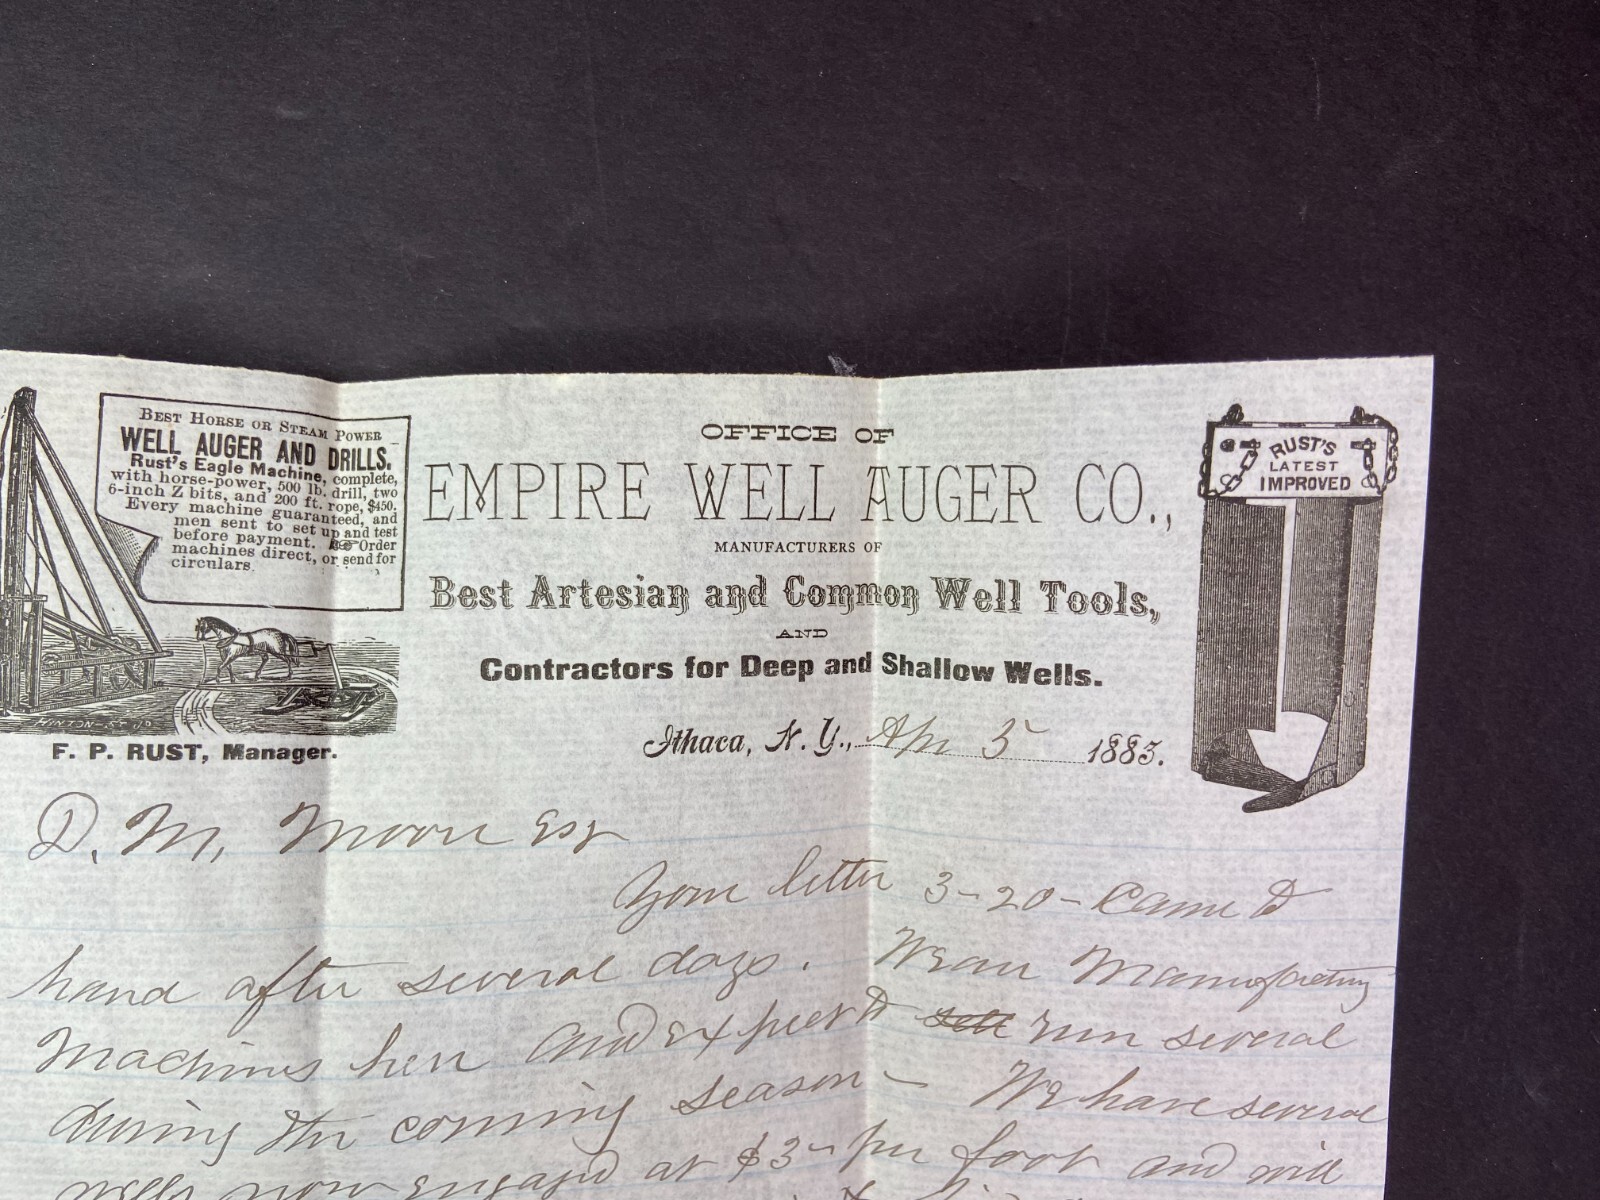 BEST HORSE OR STEAM POWER
WELL AUGER AND DRILLS.
Rust's Eagle Machine, complete,
with horse-power, 500 lb. drill, two
6-inch Z bits, and 200 ft. rope, $450.
Every machine guaranteed, and
men sent to set up and test
before payment. ☞ Order
machines direct, or send for
circulars.
F. P. RUST, Manager.
OFFICE OF
EMPIRE WELL AUGER CO.,
MANUFACTURERS OF
Best Artesian and Common Well Tools,
AND
Contractors for Deep and Shallow Wells.
RUST'S
LATEST
IMPROVED
Ithaca, N. Y., Apr 5 1883.
D. M. Moore Esq
Your letter 3-20- came to
hand after several days. We are Manufacturing
Machines here and expect to sell run several
during the coming season - We have several
wells now engaged at $3- per foot and will